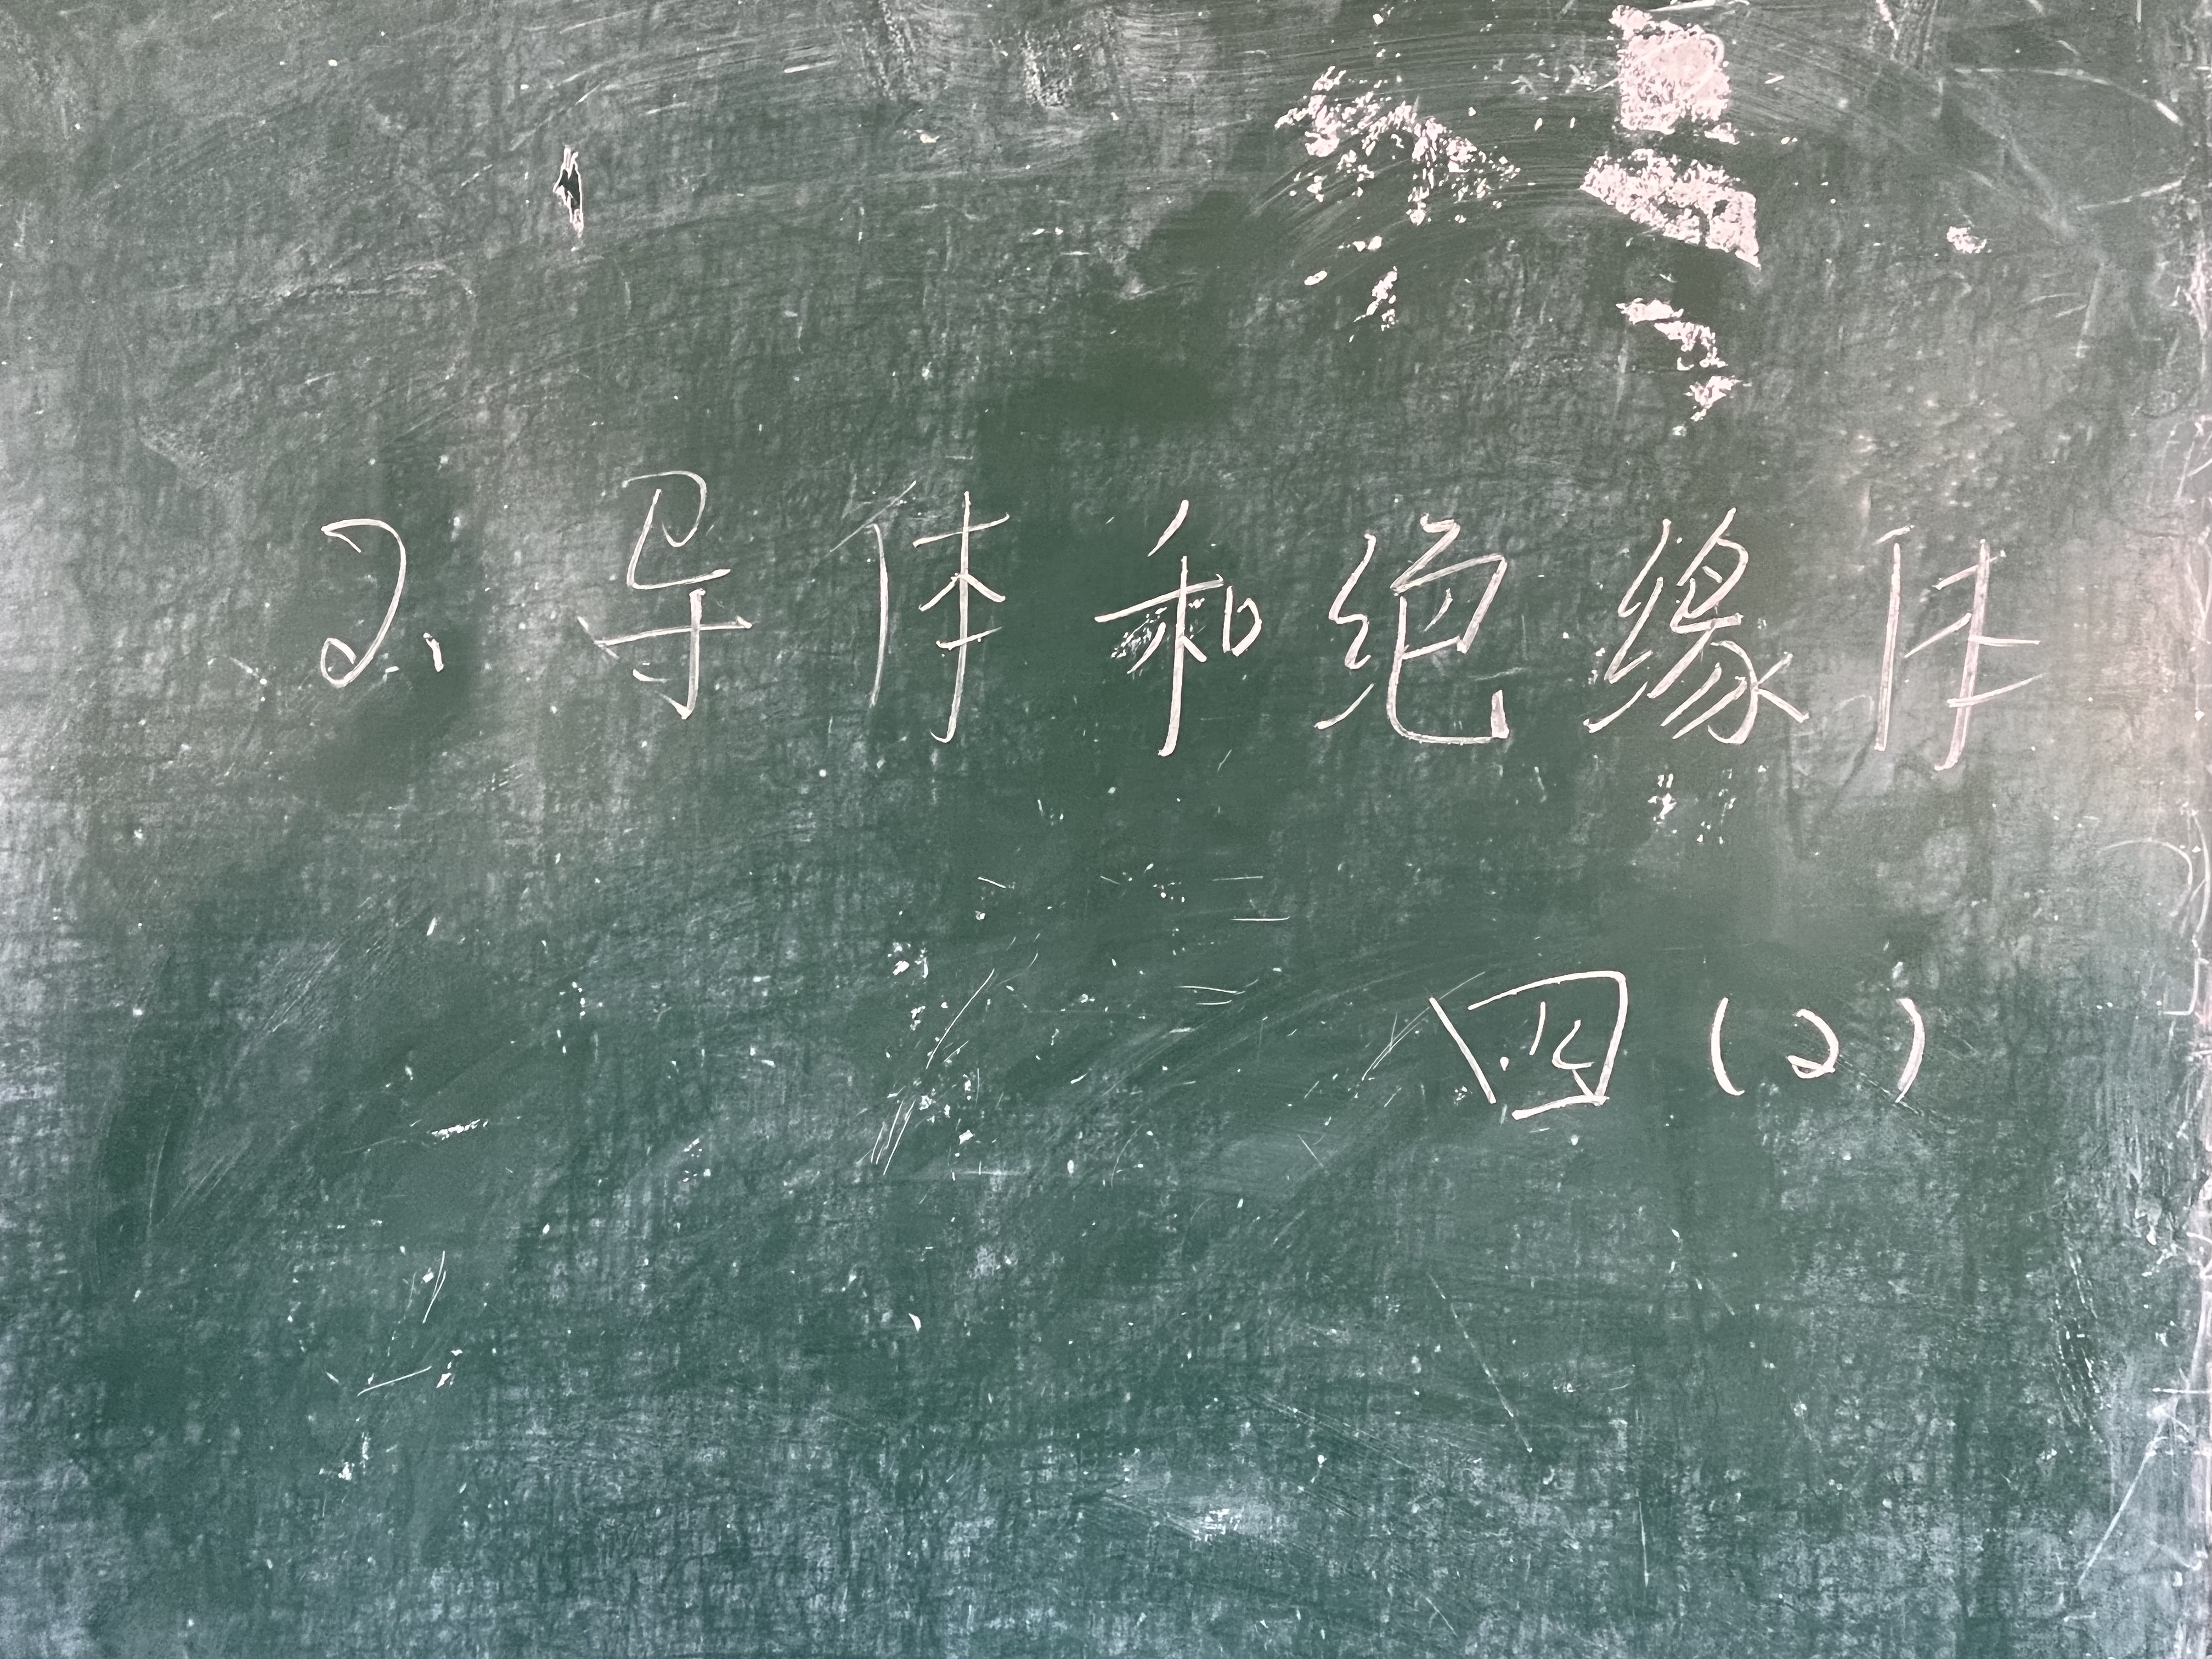 2、导体和绝缘体
四(2)